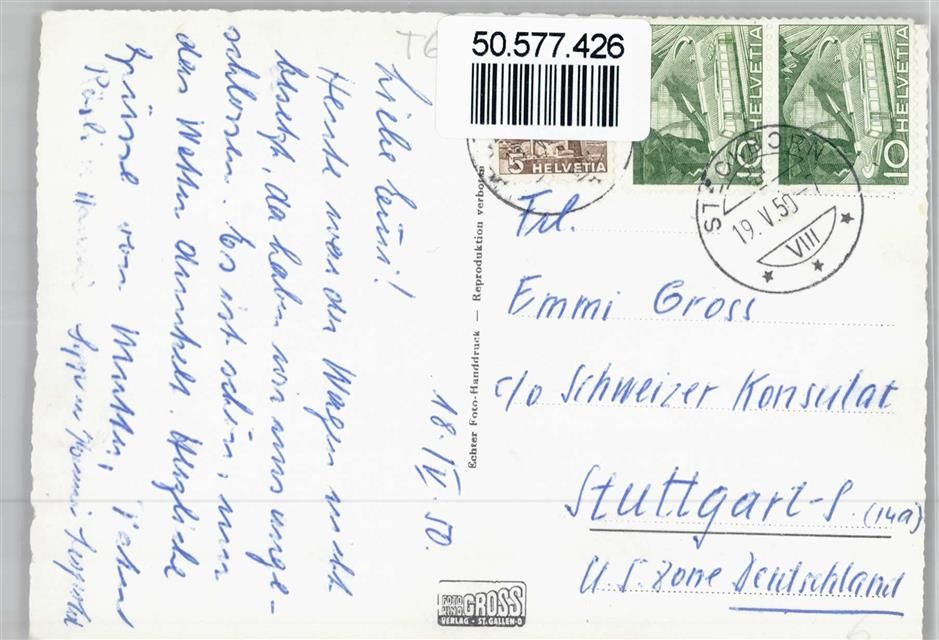 50.577.426
HELVETIA
10
HELVETIA
10
5
HELVETIA
19.V.50
VIII
Liebe Emmi!
18./V. 50.
Heute war der Wagen nicht
besetzt, da haben wir uns
schlossen. Es ist schön, nur
das Wetter dunkel. Herzliche
Grüsse von Mutter,
Frl.
Emmi Gross
c/o Schweizer Konsulat
Stuttgart-S. (14a)
U.S. Zone Deutschland
Echter Foto-Handdruck — Reproduktion verboten
FOTO
KINO
GROSS
VERLAG - ST. GALLEN-O